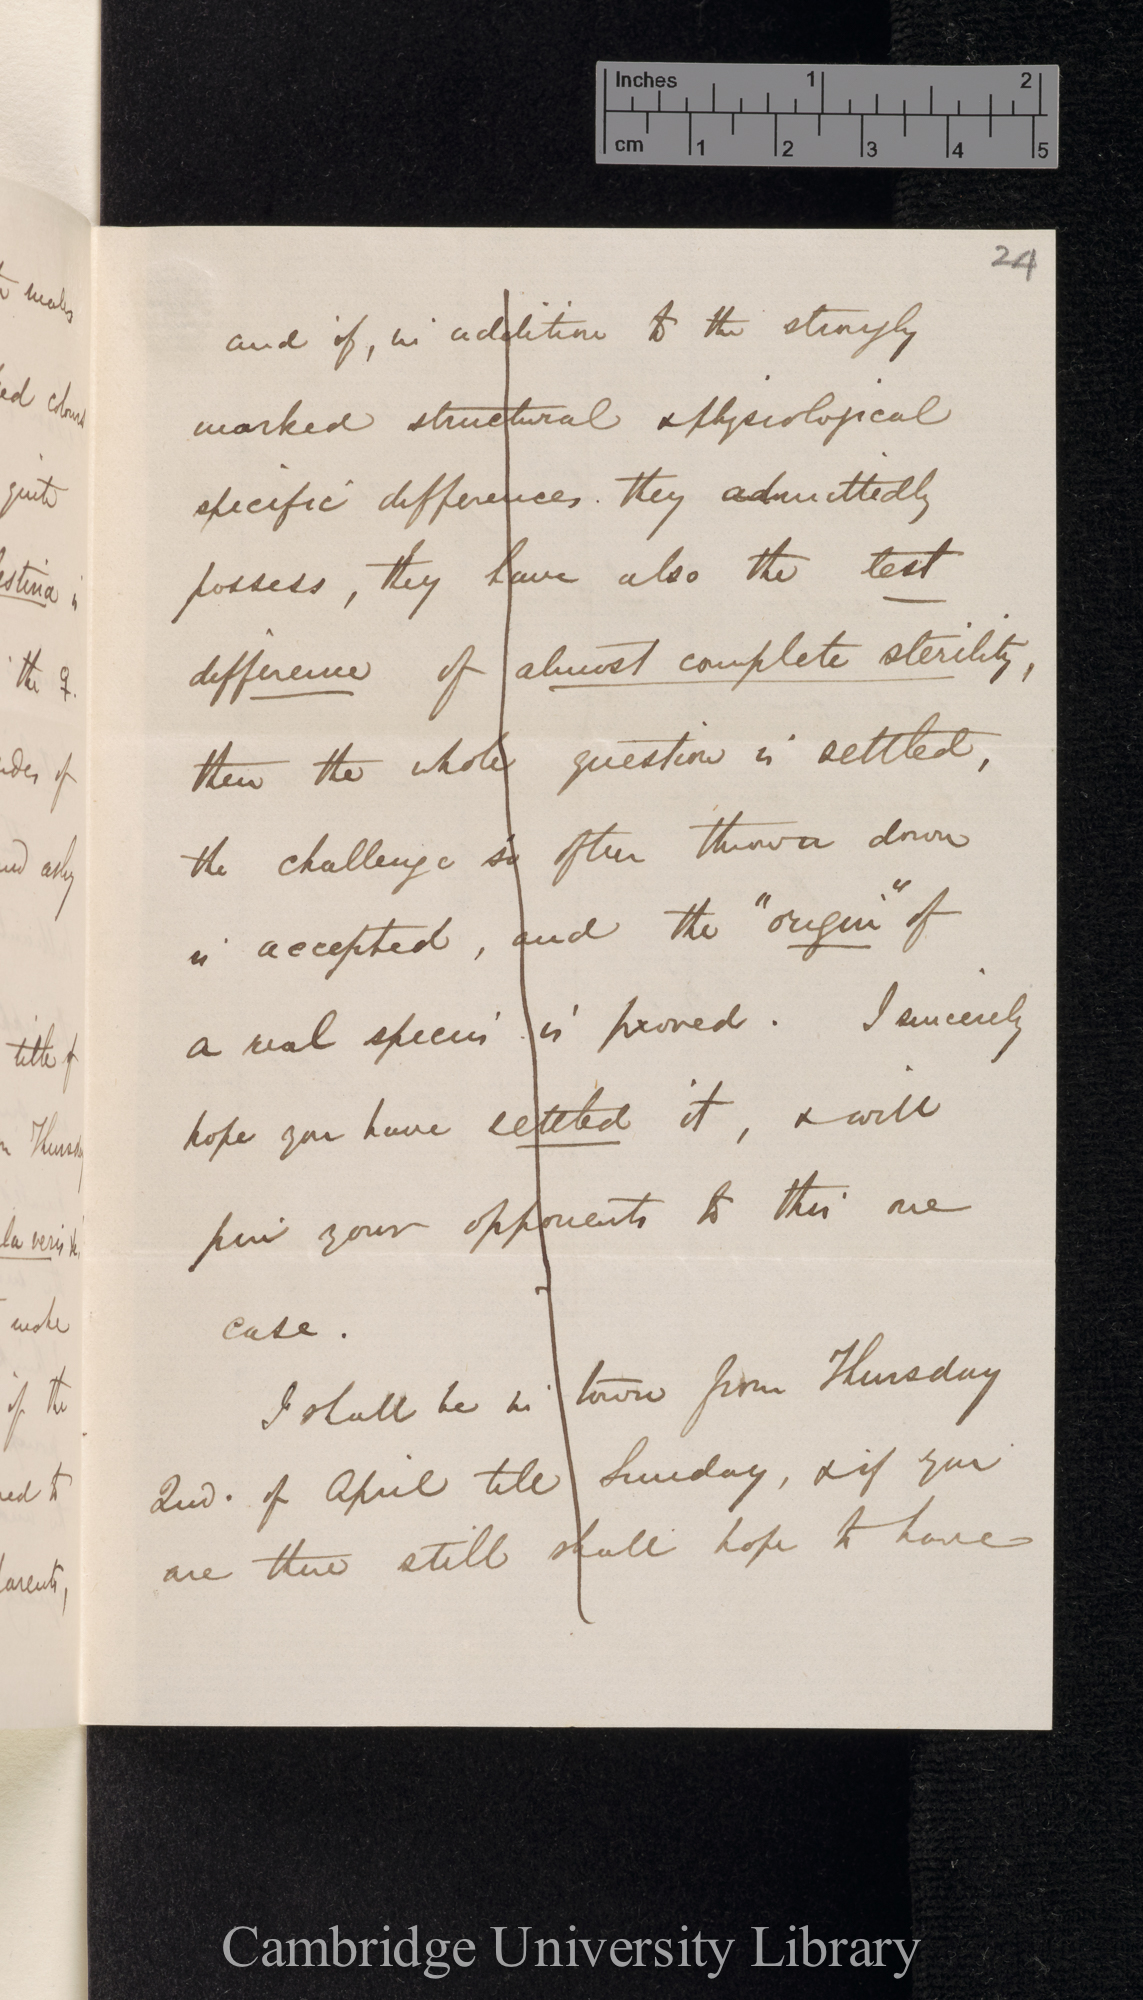 Inches 1 2
cm 1 2 3 4 5
24
and if, in addition to the strongly
marked structural & physiological
specific differences they admittedly
possess, they have also the test
difference of almost complete sterility,
then the whole question is settled,
the challenge so often thrown down
is accepted, and the "origin" of
a real species is proved. I sincerely
hope you have settled it, & will
pin your opponents to this one
case.
I shall be in town from Thursday
2nd. of April till Sunday, & if you
are there still shall hope to have
males
ed colours
quite
estina is
the ♀.
ades of
nd ashy
title of
Thursday
la veris
make
if the
ed to
parents,
Cambridge University Library